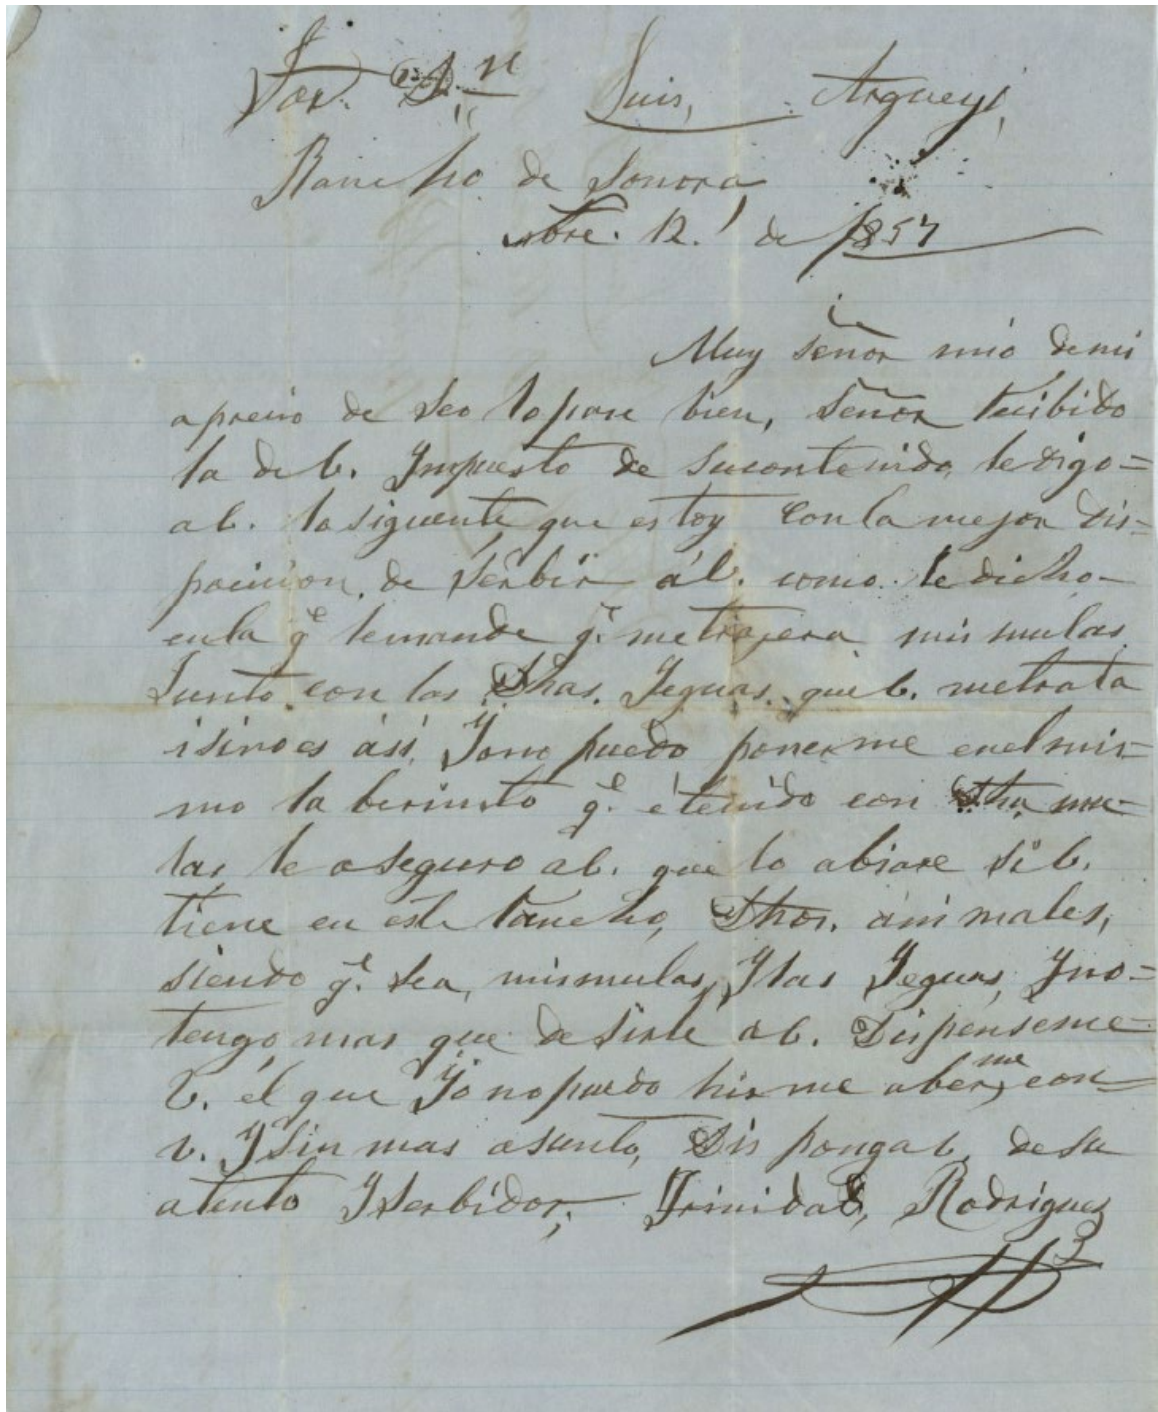 Sor. Dn. Luis, Argueyi,
Rancho de Sonora
obre. 12. de 1857
Muy señor mio demi
aprecio de seo lopase bien, señor recibido
la de b. Impuesto de sucontenido, ledigo=
ab. losiguente que estoy con la mejor dis=
pocicion, de serbir ál. como le dicho
enla qe. lemande qe. metrajera mis mulas
Junto con las Dhas. Yeguas. que b. metrata
isinoes ási, Yono puedo ponerme enelmis=
mo laberinto qe. étenido con Dha mu=
las le aseguro ab. que lo abiare si b.
tiene en este rancho, Dhos. animales,
siendo qe. sea, mismulas, Ylas Yeguas, Yno=
tengo mas que desirle ab. Dispenseme
b. él que Yo nopuedo hirme aberme, con
v. Ysin mas asunto, Disponga b. desu
atento Yserbidor, Trinidad, Rodriguez